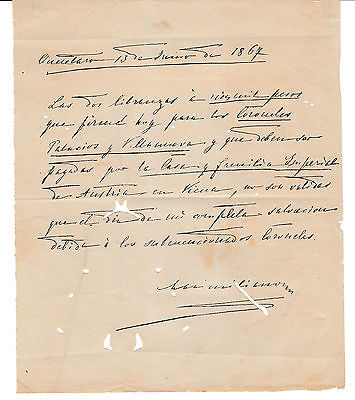 Queretaro 13 de Junio de 1867
Las dos libranzas á cien mil pesos
que firmé hoy para los Coroneles
Palacios y Villanueva y que deben ser
pagadas por la Casa y familia Imperial
de Austria en Viena, no son validas
que el dia de mi completa salvacion
debida á los submencionados Coroneles.
Maximiliano